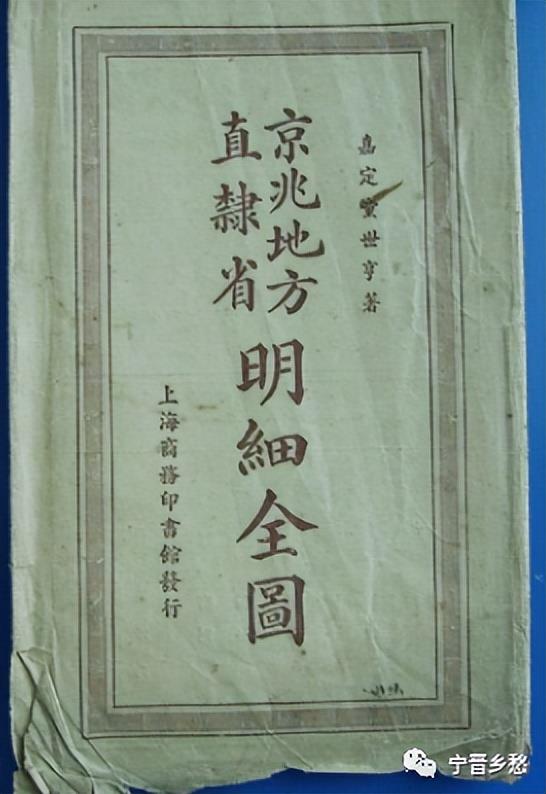 嘉定童世亨著
京兆地方
直隸省
明細全圖
上海商務印書館發行
宁晋乡愁